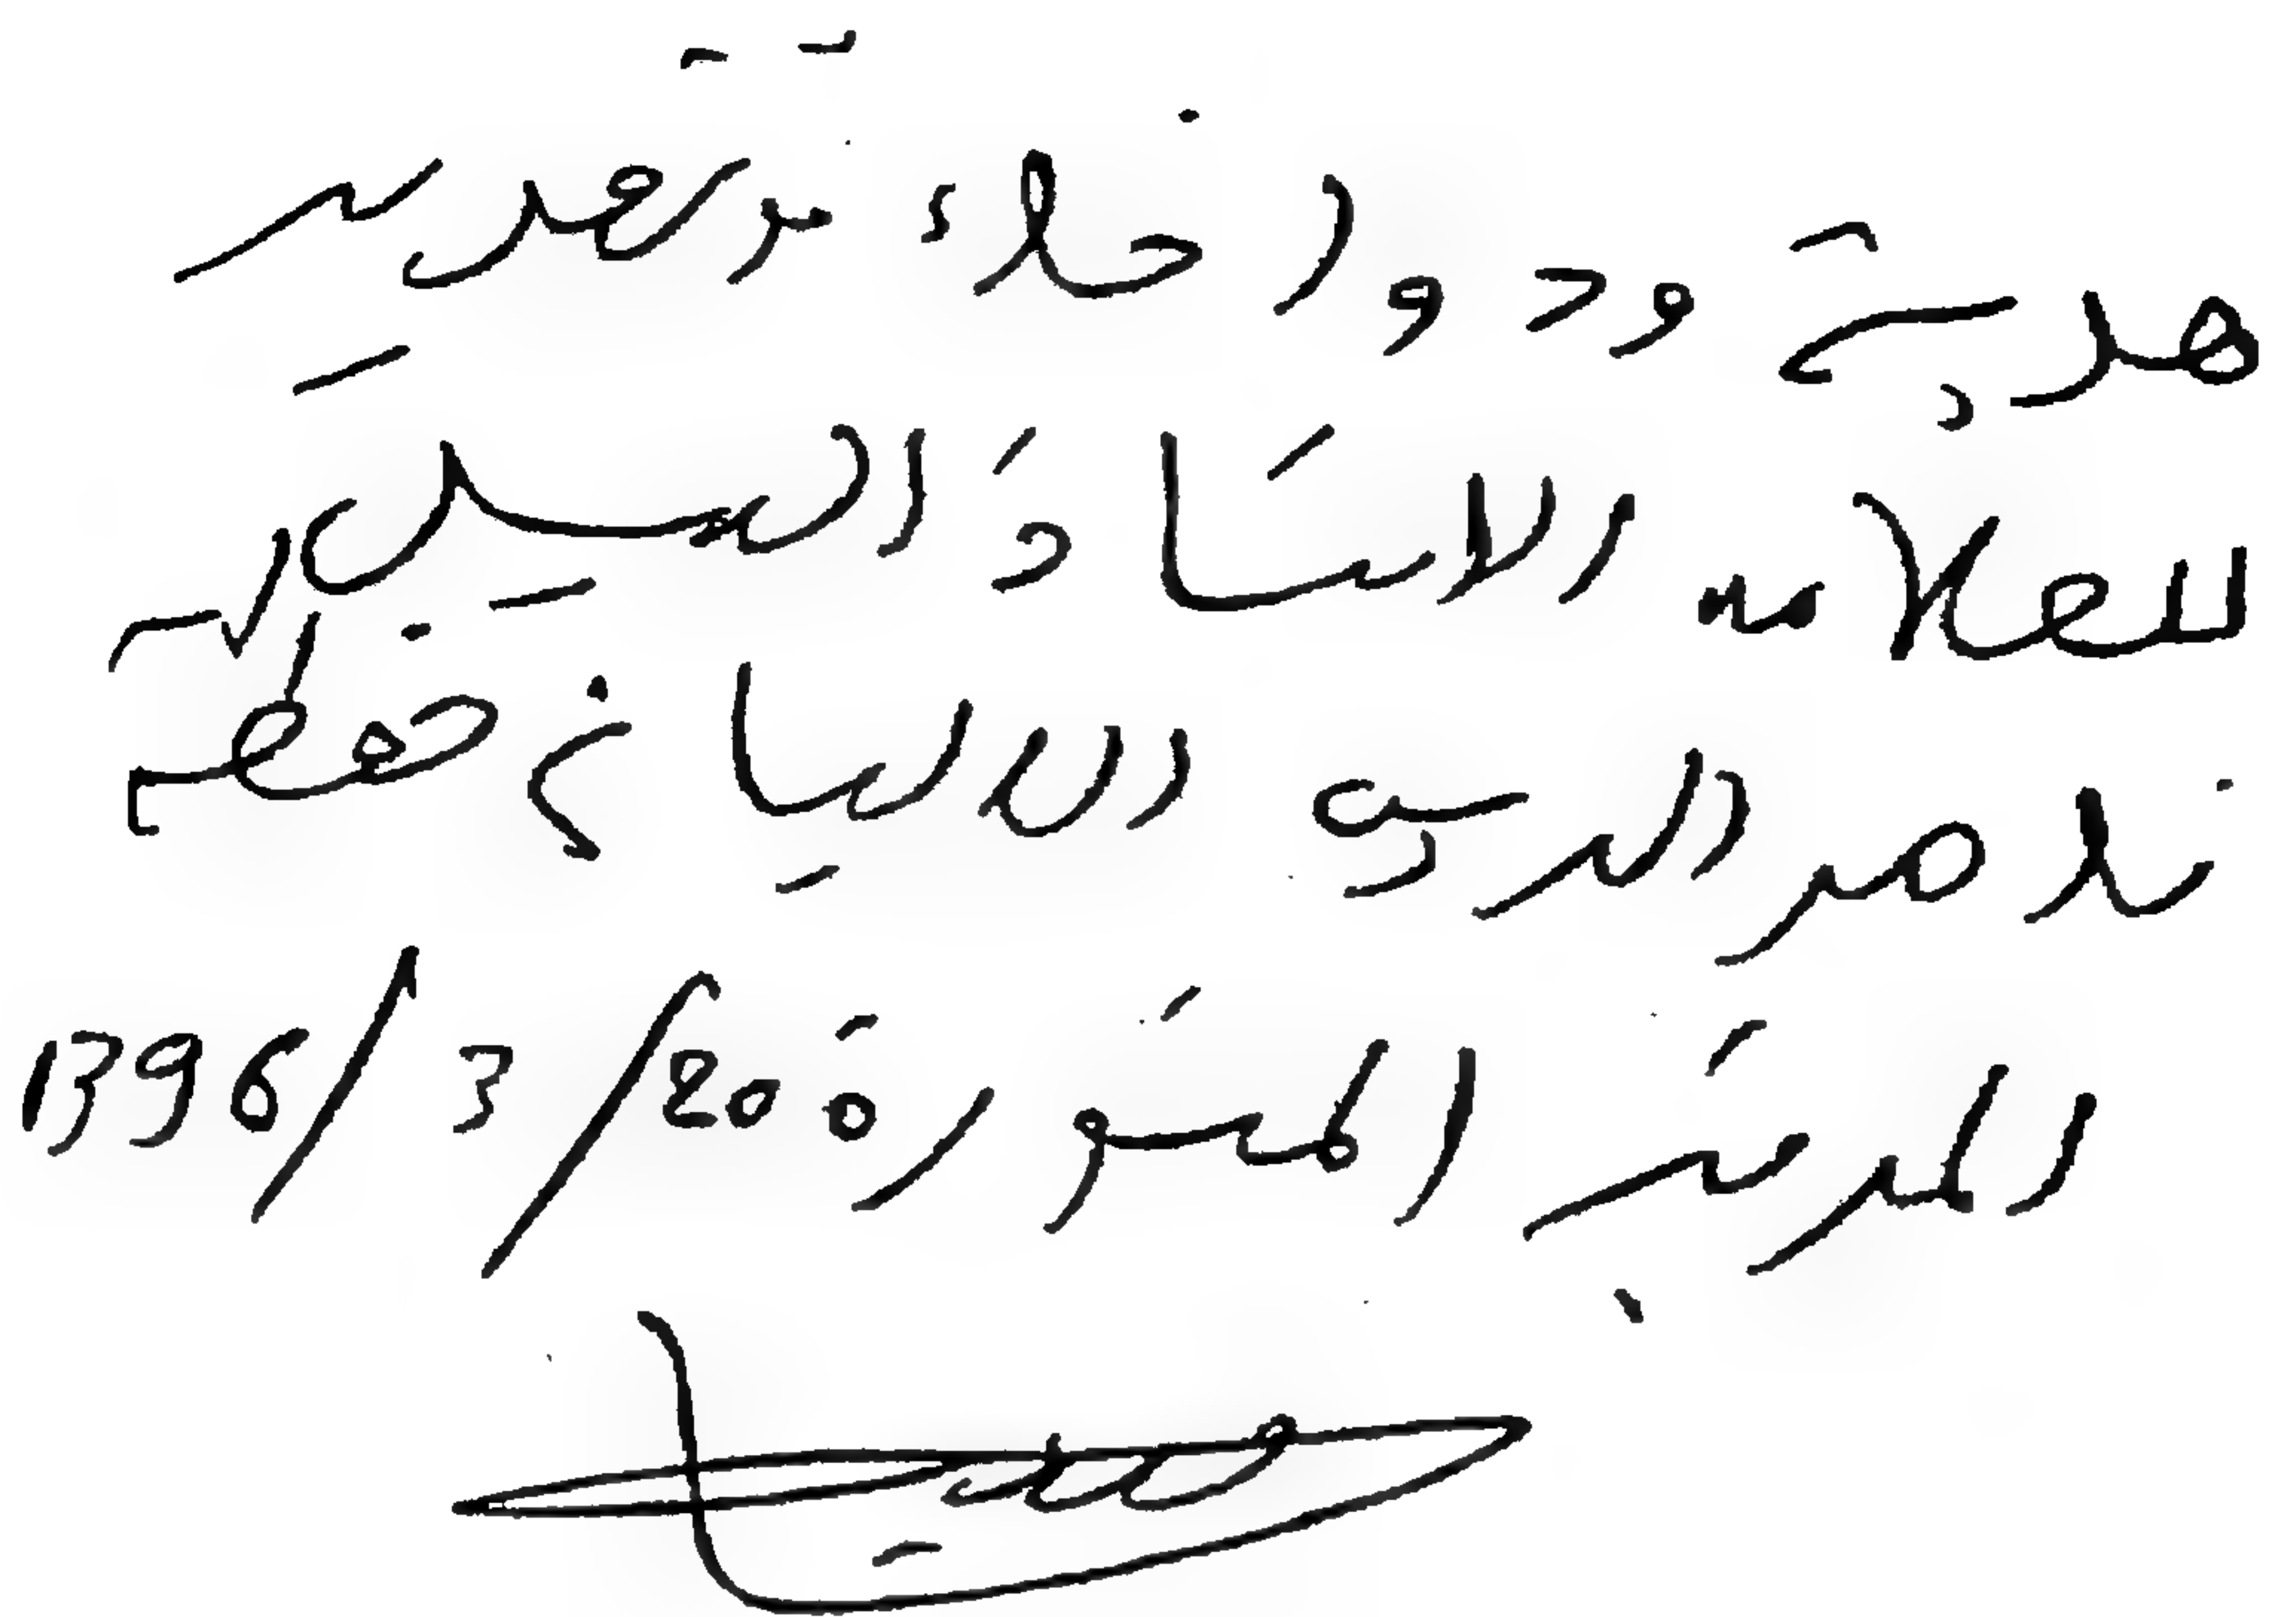 هدية ود وإخاء وتقدير
للعلامة الاستاذ السيد
ناصر الدين الالباني حفظه
المدينة المنورة 20/3/1396